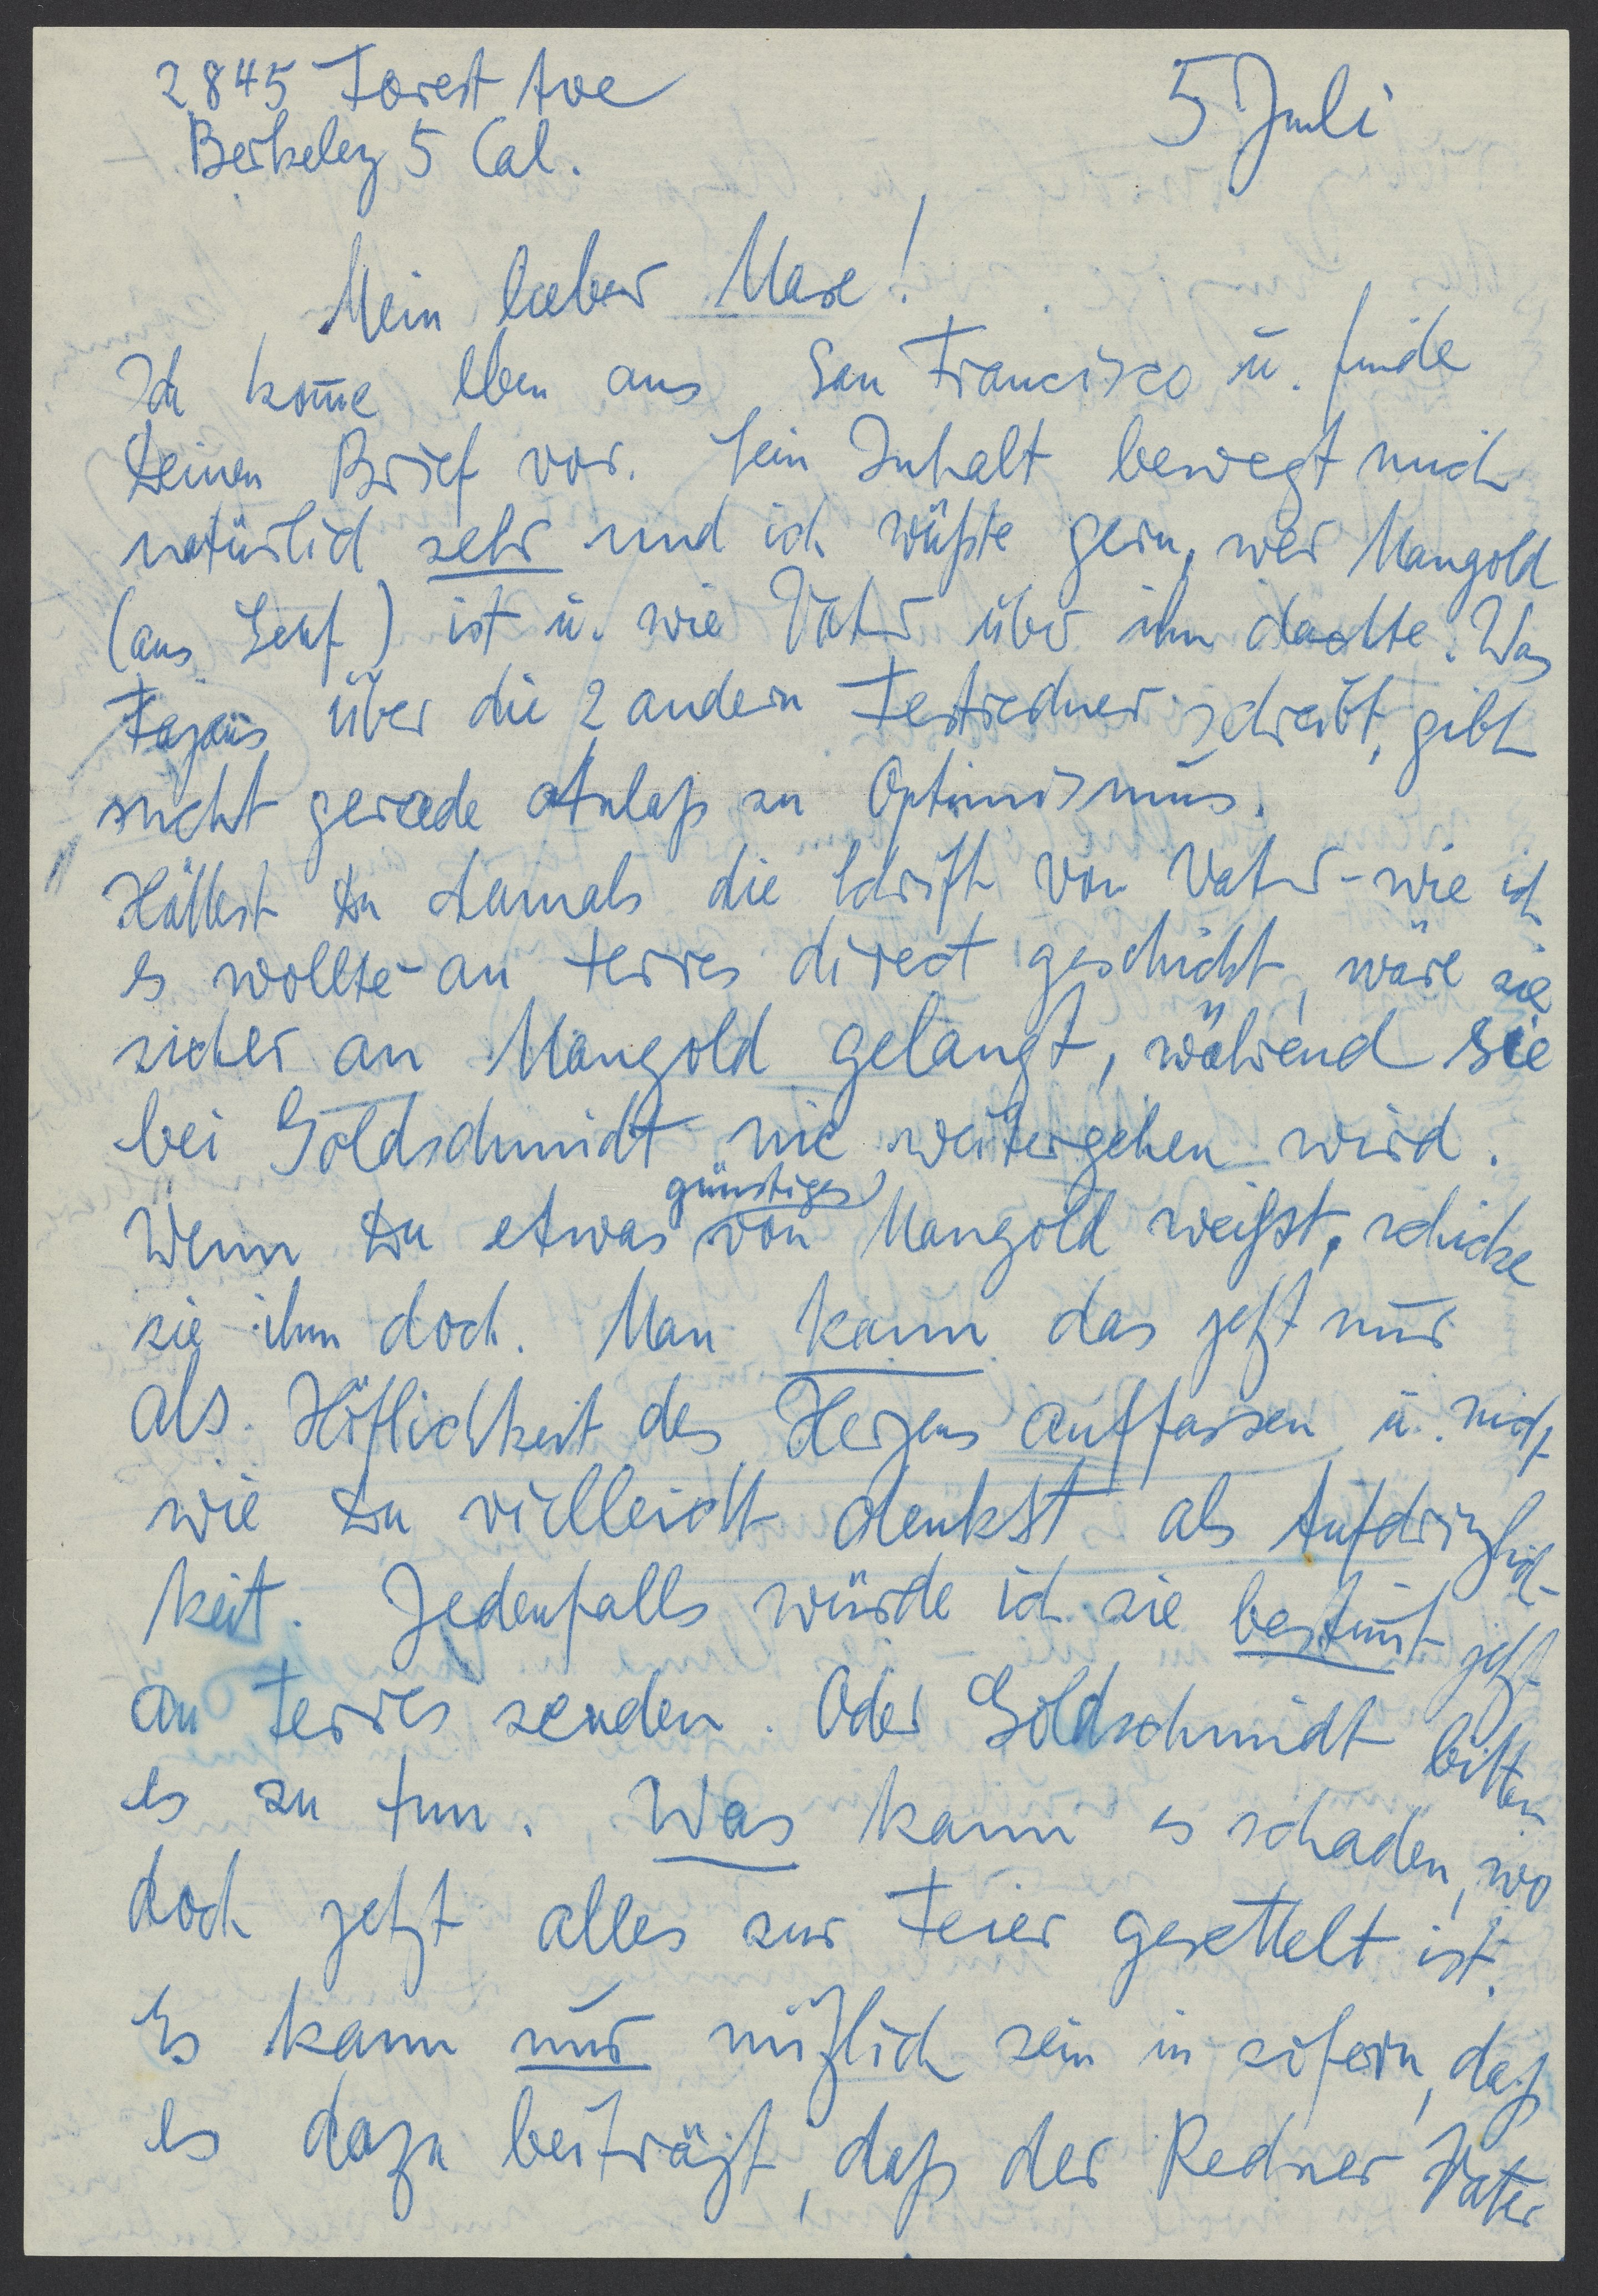 2845 Forest Ave
Berkeley 5 Cal.
5 Juli
Mein lieber Maxe!
Ich kom̄e eben aus San Francisco u. finde
Deinen Brief vor. Sein Inhalt bewegt mich
natürlich sehr und ich wüßte gern, wer Mangold
(aus Genf) ist u. wie Vater über ihn dachte. Was
über die 2 andern Festredner schreibt, gibt
nicht gerade Anlaß zu Optimismus.
Hättest Du damals die Schrift von Vater - wie ich
es wollte - an Ferres direct geschickt, wäre sie
sicher an Mangold gelangt, während sie
bei Goldschmidt nie weitergehen wird.
Wenn Du etwas günstiges von Mangold weißt, schicke
sie ihm doch. Man kann das jetzt nur
als Höflichkeit des Herzens auffassen u. nicht
wie Du vielleicht denkst als Aufdringlich-
keit. Jedenfalls würde ich sie bestim̄t jetzt
an Ferres senden. Oder Goldschmidt bitten
es zu tun. Was kann es schaden, wo
doch jetzt alles zur Feier gesettelt ist.
Es kann nur nützlich sein in sofern, daß
es dazu beiträgt, daß der Redner Vater